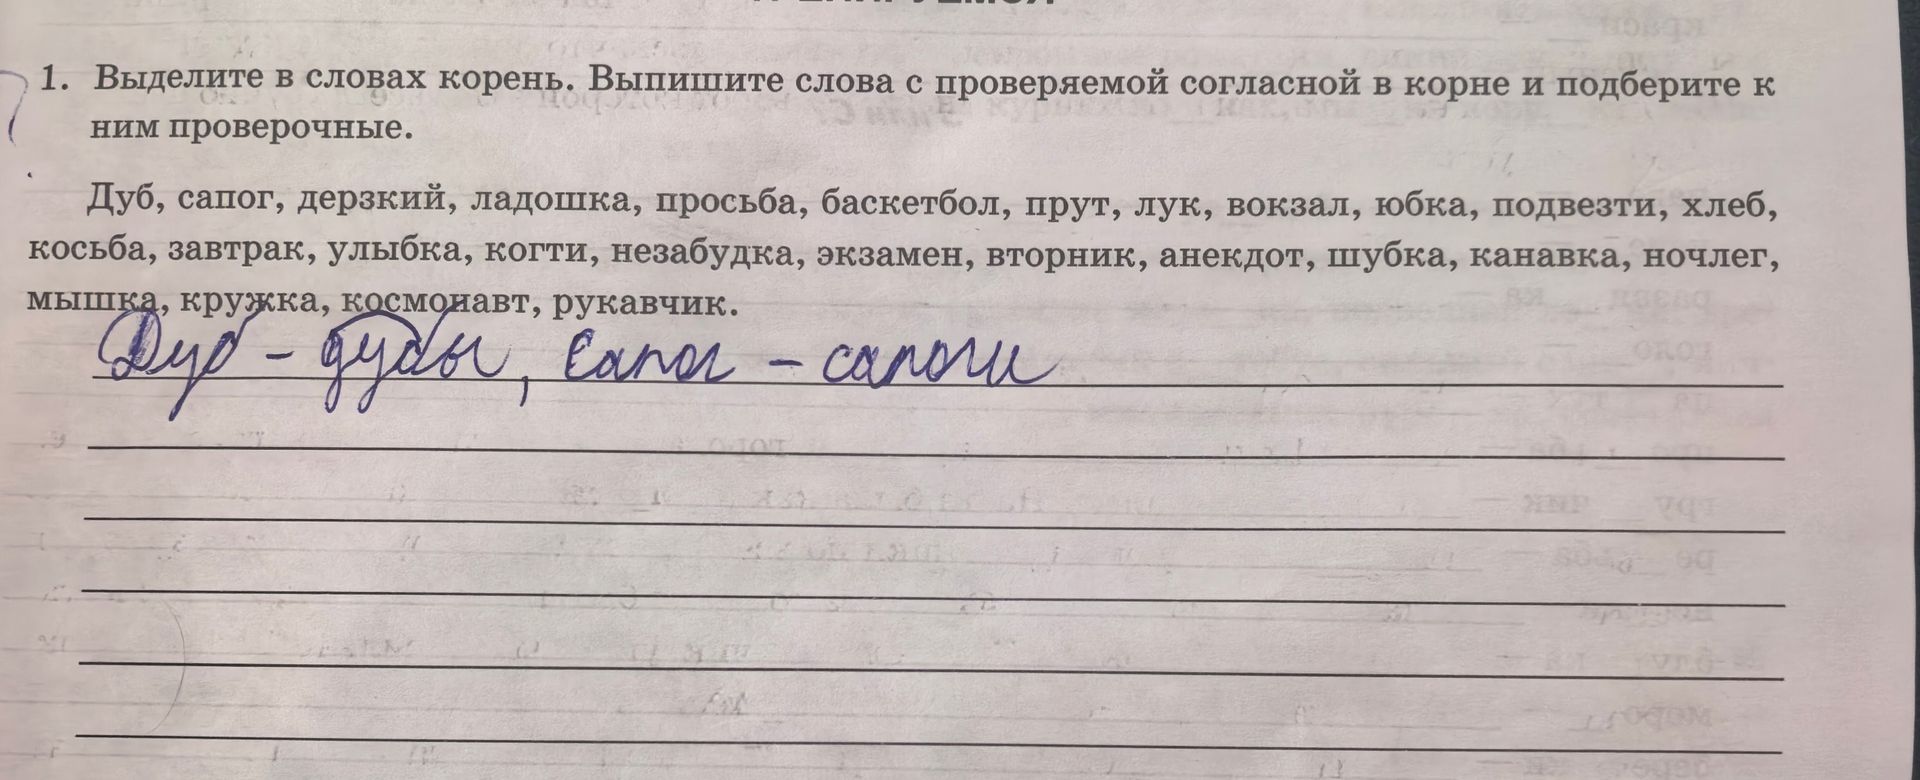 1. Выделите в словах корень. Выпишите слова с проверяемой согласной в корне и подберите к
ним проверочные.
Дуб, сапог, дерзкий, ладошка, просьба, баскетбол, прут, лук, вокзал, юбка, подвезти, хлеб,
косьба, завтрак, улыбка, когти, незабудка, экзамен, вторник, анекдот, шубка, канавка, ночлег,
мышка, кружка, космонавт, рукавчик.
Дуб - дубы, Сапог - сапоги